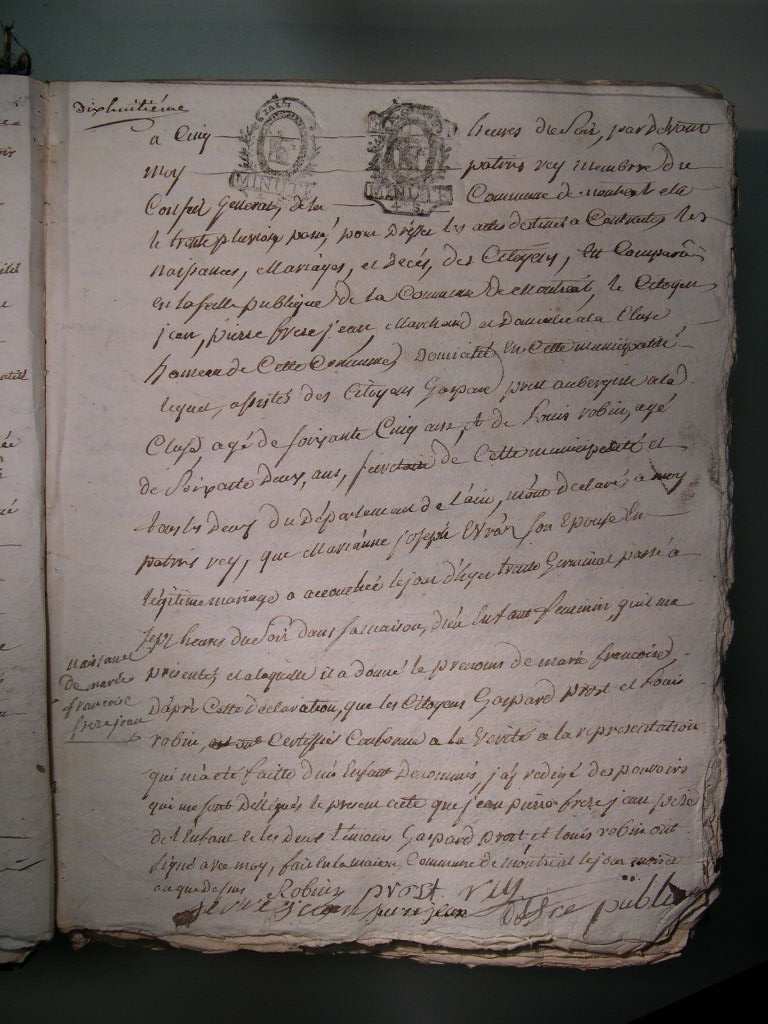 Dixhuitiéme
a Cinq heures du Soir, par devant
moy patris rey membre du
MINUTE
MINUTE
Conseil General, de la Commune de montreal elu
le trente pluviose passé, pour Dresser les actes destinés a Constater les
naissances, Mariages, et Decés, des Citoyens, est Comparu
en la salle publique de la Commune de Montreal, le Citoyen
jean, pierre frere jean Marchand et Domicilié a la Cluse
hameau de Cette Commune, Domicilié En Cette municipalité
lequel, assistés des Citoyens Gaspard prost aubergiste a la
Cluse agé de soixante Cinq ans, et de Louis robin, agé
de Soixante deux, ans, de Cette municipalité et
tous les deux du Département de l'ain, m'ont declaré, a moy
patris rey, que Marianne joseph son Epouse En
légitime mariage a accouchée le jour d'hyer trente Germinal passé a
sept heures du Soir dans sa maison, d'un Enfant feminin, quil ma
présenté, et a laquelle il a donné le prenoms de marie francoise,
naissance
de marie
francoise
frere jean
d'après Cette déclaration, que les Citoyens Gaspard Prost et Louis
robin, ont Certiffiés Conforme a la verité a la représentation
qui m'a eté faitte d'un Enfant Denommés, j'ay redigé des pouvoirs
qui me sont Déllegués le present acte que jean pierre frere jean père
de l'Enfant et les deux témoins Gaspard Prost et Louis robin ont
signé avec moy, fait en la maison Commune de montréal le jour mois et
an que dessus
Robin prost rey
frere jean officie public